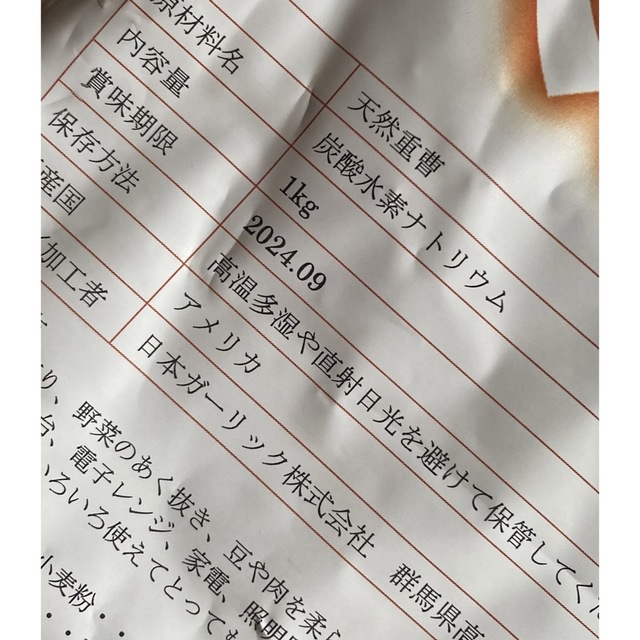 天然重曹
原材料名 炭酸水素ナトリウム
内容量 1kg
賞味期限 2024.09
保存方法 高温多湿や直射日光を避けて保管してくだ
産国 アメリカ
加工者 日本ガーリック株式会社 群馬県高
り、野菜のあく抜き、豆や肉を柔ら
台、電子レンジ、家電、照明
いろいろ使えてとっても
小麦粉・・